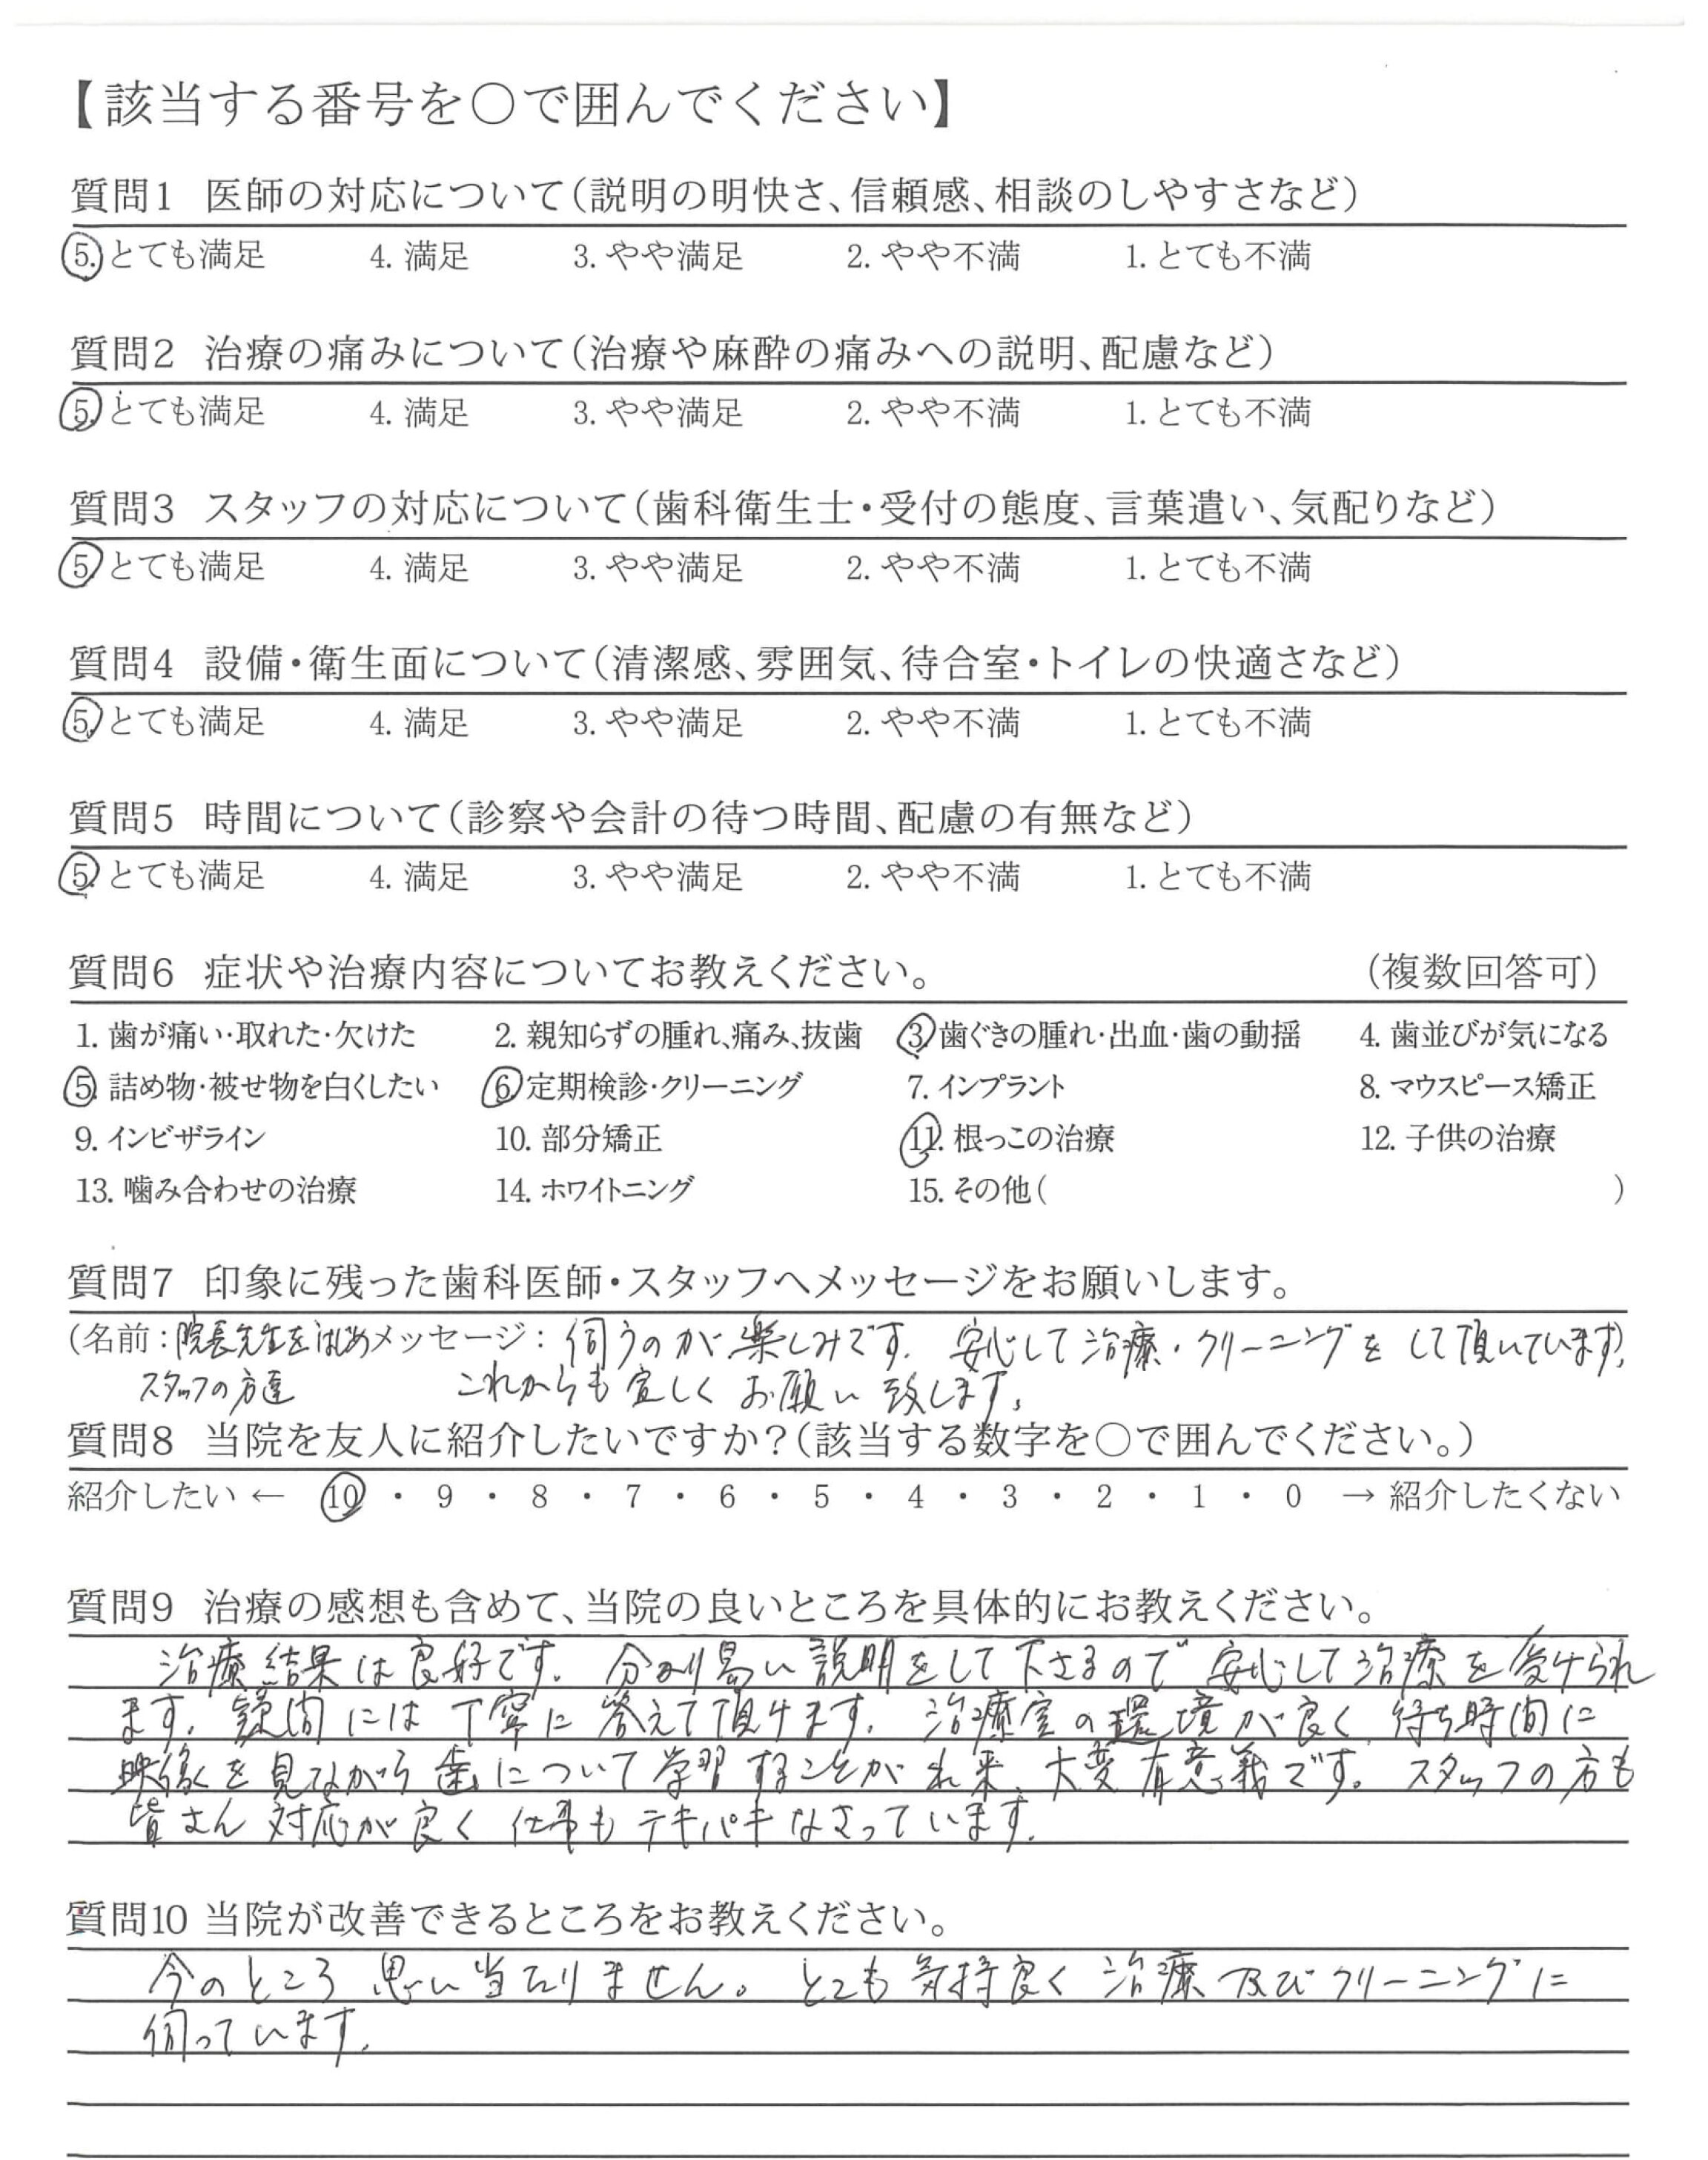 【該当する番号を〇で囲んでください】
質問1 医師の対応について(説明の明快さ、信頼感、相談のしやすさなど)
5. とても満足 4. 満足 3. やや満足 2. やや不満 1. とても不満
質問2 治療の痛みについて(治療や麻酔の痛みへの説明、配慮など)
5. とても満足 4. 満足 3. やや満足 2. やや不満 1. とても不満
質問3 スタッフの対応について(歯科衛生士・受付の態度、言葉遣い、気配りなど)
5. とても満足 4. 満足 3. やや満足 2. やや不満 1. とても不満
質問4 設備・衛生面について(清潔感、雰囲気、待合室・トイレの快適さなど)
5. とても満足 4. 満足 3. やや満足 2. やや不満 1. とても不満
質問5 時間について(診察や会計の待つ時間、配慮の有無など)
5. とても満足 4. 満足 3. やや満足 2. やや不満 1. とても不満
質問6 症状や治療内容についてお教えください。 (複数回答可)
1. 歯が痛い・取れた・欠けた 2. 親知らずの腫れ、痛み、抜歯 3. 歯ぐきの腫れ・出血・歯の動揺 4. 歯並びが気になる
5. 詰め物・被せ物を白くしたい 6. 定期検診・クリーニング 7. インプラント 8. マウスピース矯正
9. インビザライン 10. 部分矯正 11. 根っこの治療 12. 子供の治療
13. 噛み合わせの治療 14. ホワイトニング 15. その他( )
質問7 印象に残った歯科医師・スタッフへメッセージをお願いします。
(名前:院長先生をはじめ メッセージ: 伺うのが楽しみです。安心して治療・クリーニングをして頂いています。
スタッフの方達 これからも宜しくお願い致します。
質問8 当院を友人に紹介したいですか?(該当する数字を〇で囲んでください。)
紹介したい ← 10 ・ 9 ・ 8 ・ 7 ・ 6 ・ 5 ・ 4 ・ 3 ・ 2 ・ 1 ・ 0 → 紹介したくない
質問9 治療の感想も含めて、当院の良いところを具体的にお教えください。
治療結果は良好です。分かり易い説明をして下さるので安心して治療を受けられ
ます。質問には丁寧に答えて頂けます。治療室の環境が良く待ち時間に
映像を見ながら歯について学習することが出来、大変有意義です。スタッフの方も
皆さん対応が良く仕事もテキパキなさっています。
質問10 当院が改善できるところをお教えください。
今のところ思い当たりません。とても気持良く治療及びクリーニングに
伺っています。